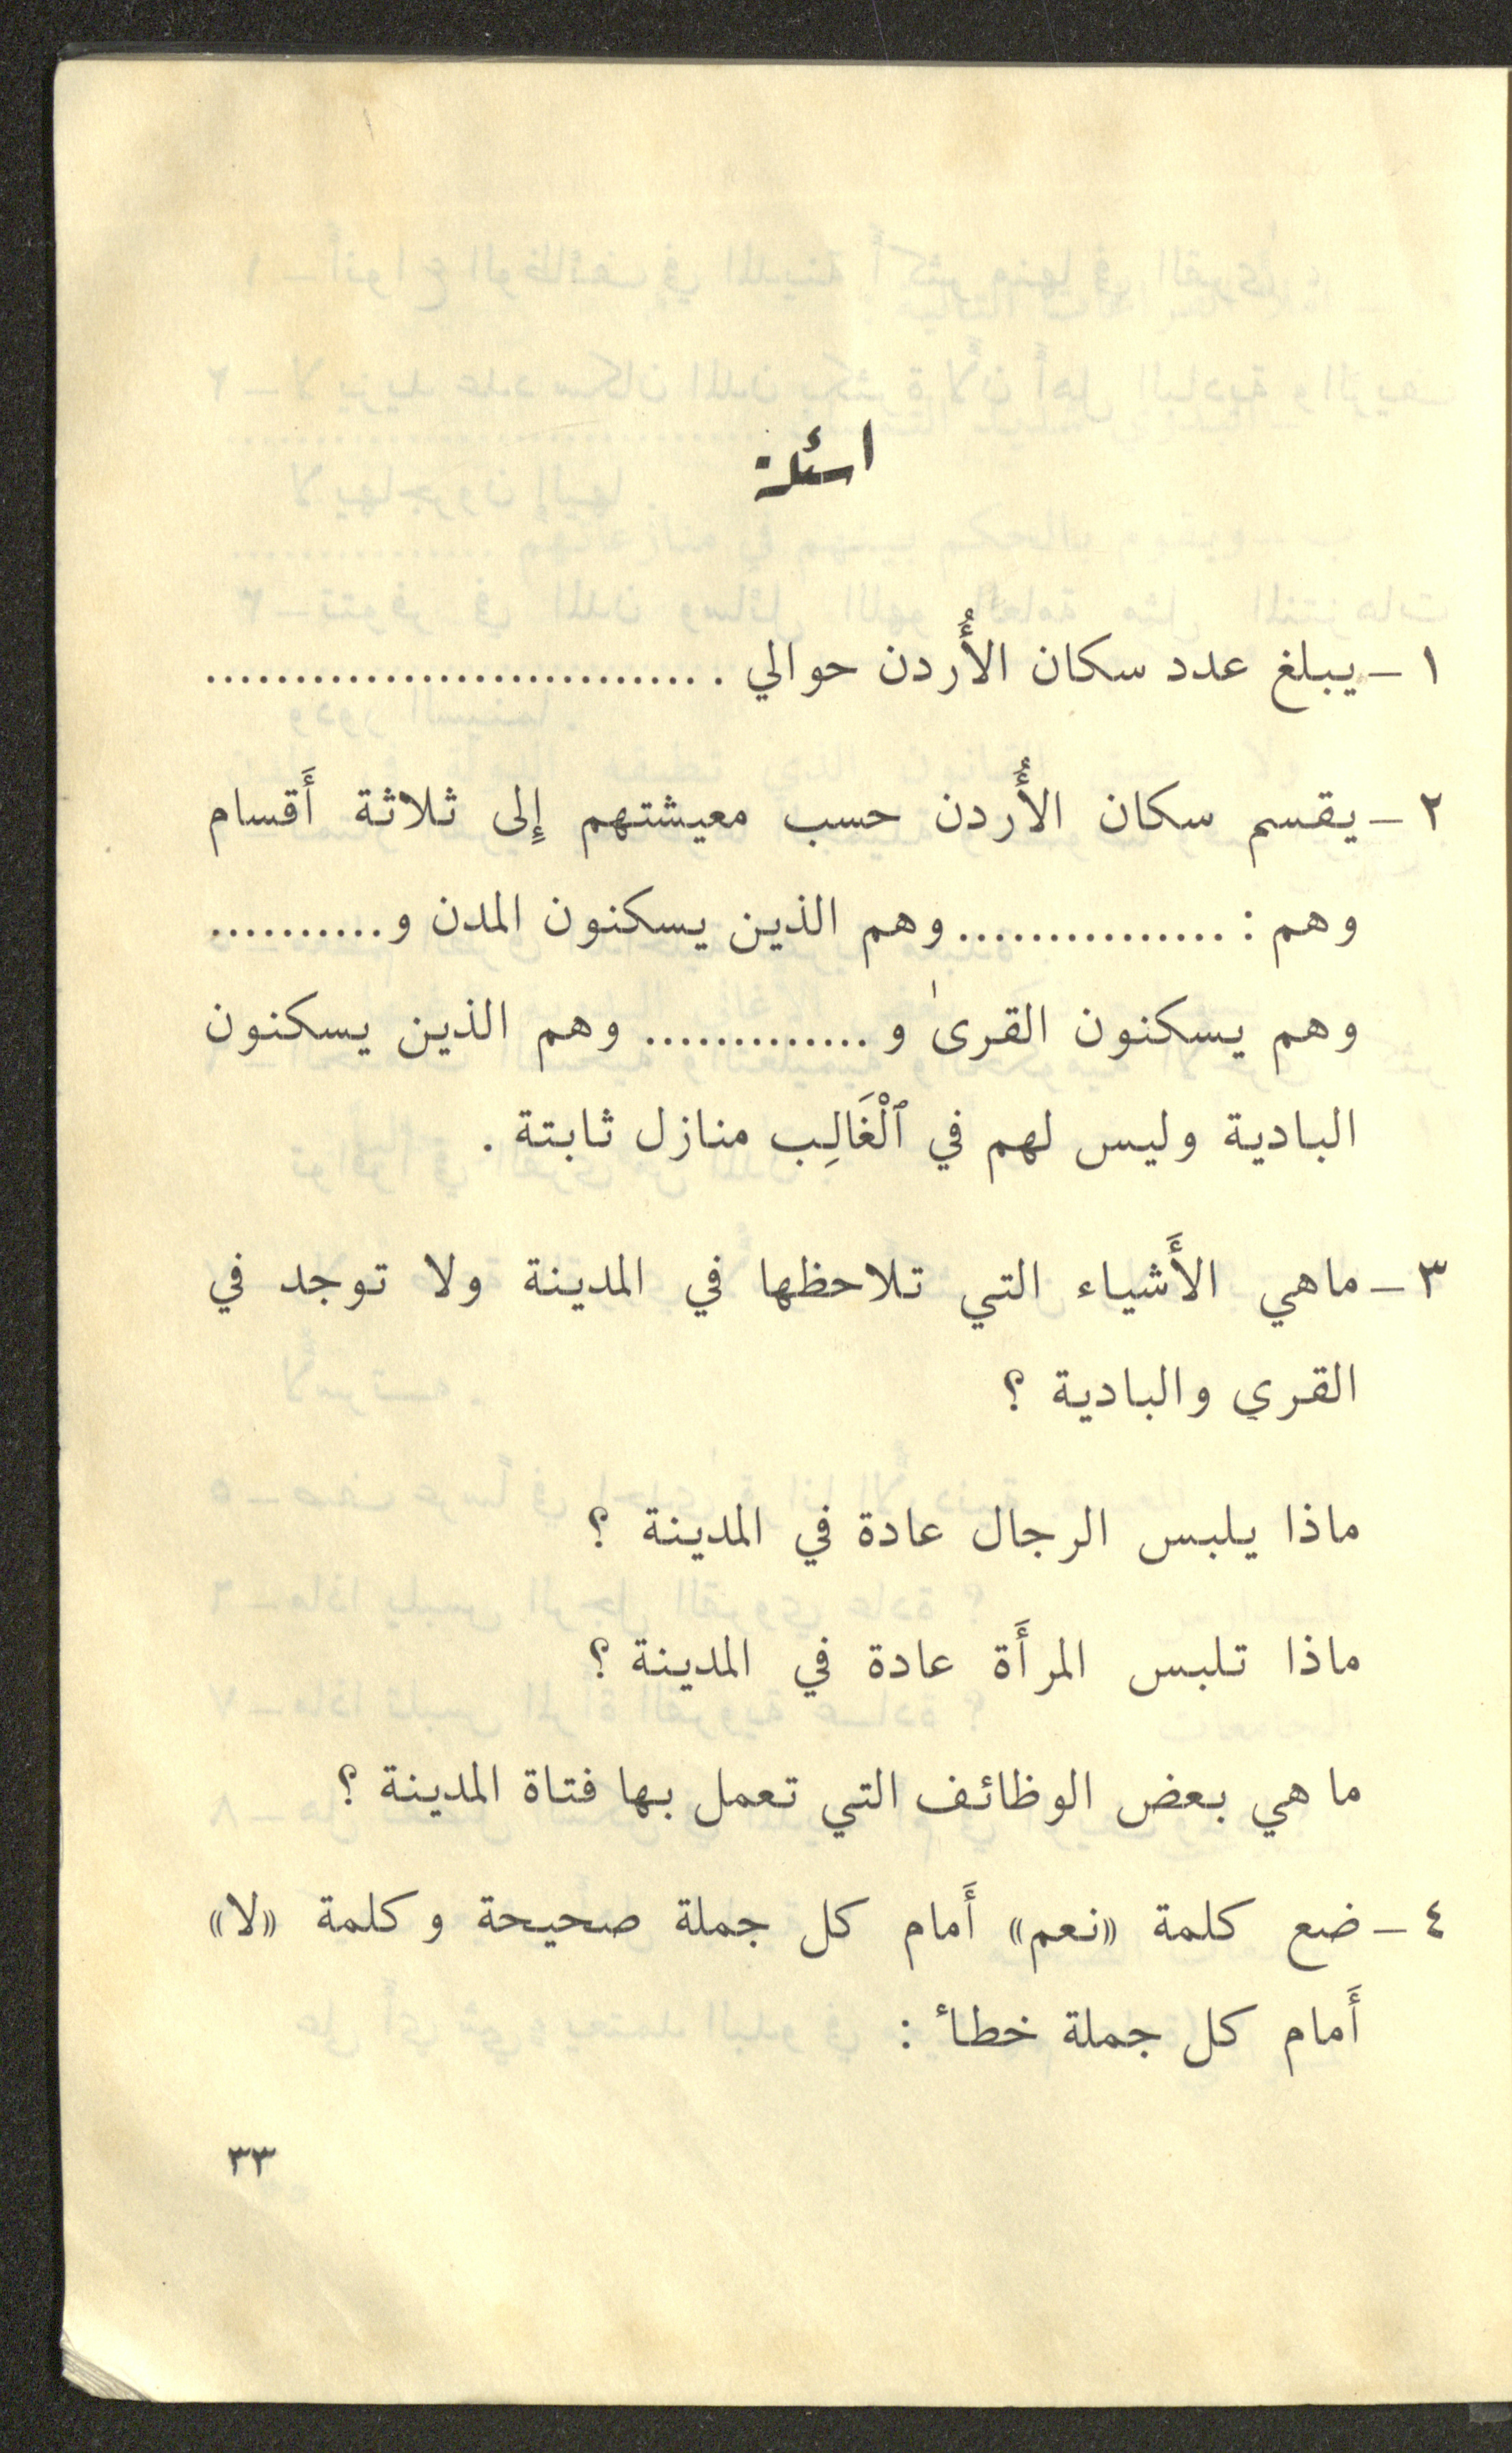 اسئلة
١ - يبلغ عدد سكان الأُردن حوالي ..............................
٢ - يقسم سكان الأُردن حسب معيشتهم إِلى ثلاثة أَقسام
وهم : ............... وهم الذين يسكنون المدن و ..........
وهم يسكنون القرىٰ و ............. وهم الذين يسكنون
البادية وليس لهم في ٱلْغَالِب منازل ثابتة .
٣ - ماهي الأَشياء التي تلاحظها في المدينة ولا توجد في
القرى والبادية ؟
ماذا يلبس الرجال عادة في المدينة ؟
ماذا تلبس المرأَة عادة في المدينة ؟
ما هي بعض الوظائف التي تعمل بها فتاة المدينة ؟
٤ - ضع كلمة «نعم» أَمام كل جملة صحيحة وكلمة «لا»
أَمام كل جملة خطأ :
٣٣